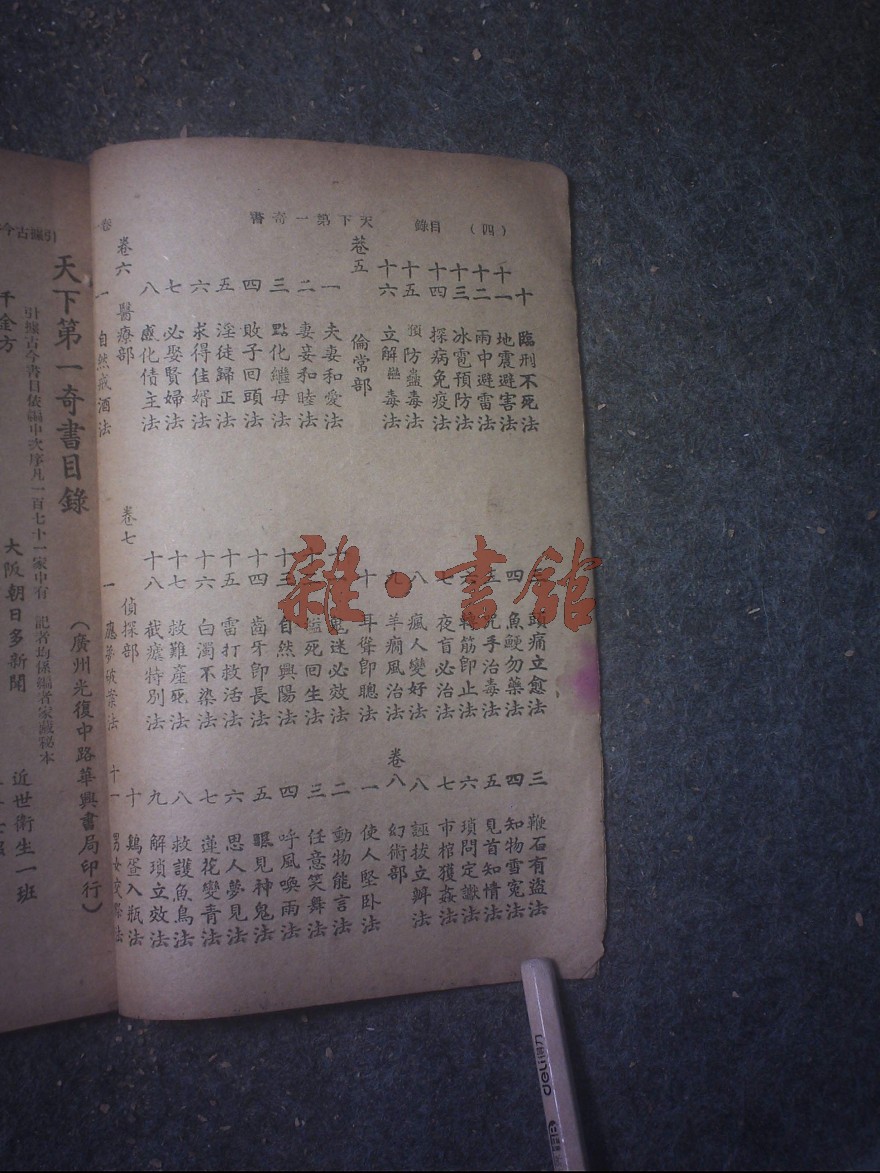 (四) 目錄 天下第一奇書
十 臨刑不死法
十一 地震避害法
十二 雨中避雷法
十三 冰雹預防法
十四 探病免疫法
十五 預防蠱毒法
十六 立解 毒法
卷五 倫常部
一 夫妻和愛法
二 妻妾和睦法
三 點化繼母法
四 敗子回頭法
五 淫徒歸正法
六 求得佳婿法
七 必娶賢婦法
八 感化債主法
卷六 醫療部
一 自然戒酒法
三 頭痛立愈法
四 魚鯁勿藥法
五 手治毒法
六 轉筋即止法
七 夜盲必治法
八 瘋人變好法
九 羊癇風治法
十 耳聾即聰法
十一 鬼迷必效法
十二 縊死回生法
十三 自然興陽法
十四 齒牙即長法
十五 雷打救活法
十六 白濁不染法
十七 救難產死法
十八 截瘧特別法
卷七 偵探部
一 應夢破案法
三 鞭石有盜法
四 知物雪冤法
五 見首知情法
六 瑣問定讞法
七 市棺獲姦法
八 誣拔立辨法
卷八 幻術部
一 使人堅卧法
二 動物能言法
三 任意笑舞法
四 呼風喚雨法
五 眼見神鬼法
六 思人夢見法
七 蓮花變青法
八 救護魚鳥法
九 解瑣立效法
十 鷄蛋入瓶法
十一 男女 法
天下第一奇書目錄
(廣州光復中路華興書局印行)
引據古今書目依編中次序凡一百七十一家中有 記者均係編者家藏秘本
千金方
大阪朝日多新聞
近世衛生一班
引據古今
雜·書館
deli 得力